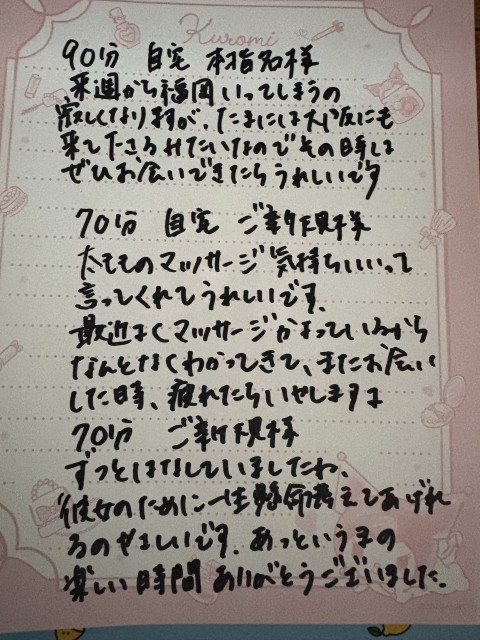 Kuromi
90分 自宅 本指名様
来週から福岡いってしまうの
寂しくなりますが、たまには大阪にも
来て下さるみたいなのでその時は
ぜひお会いできたらうれしいです
70分 自宅 ご新規様
太もものマッサージ気持ちいいって
言ってくれてうれしいです。
最近よくマッサージがよっているから
なんとなくわかってきて、またお会い
した時、疲れたらいやしますよ
70分 ご新規様
ずっとはなしていましたね、
彼女のために一生懸命考えてあげれ
るのやさしいです。あっというまの
楽しい時間ありがとうございました。